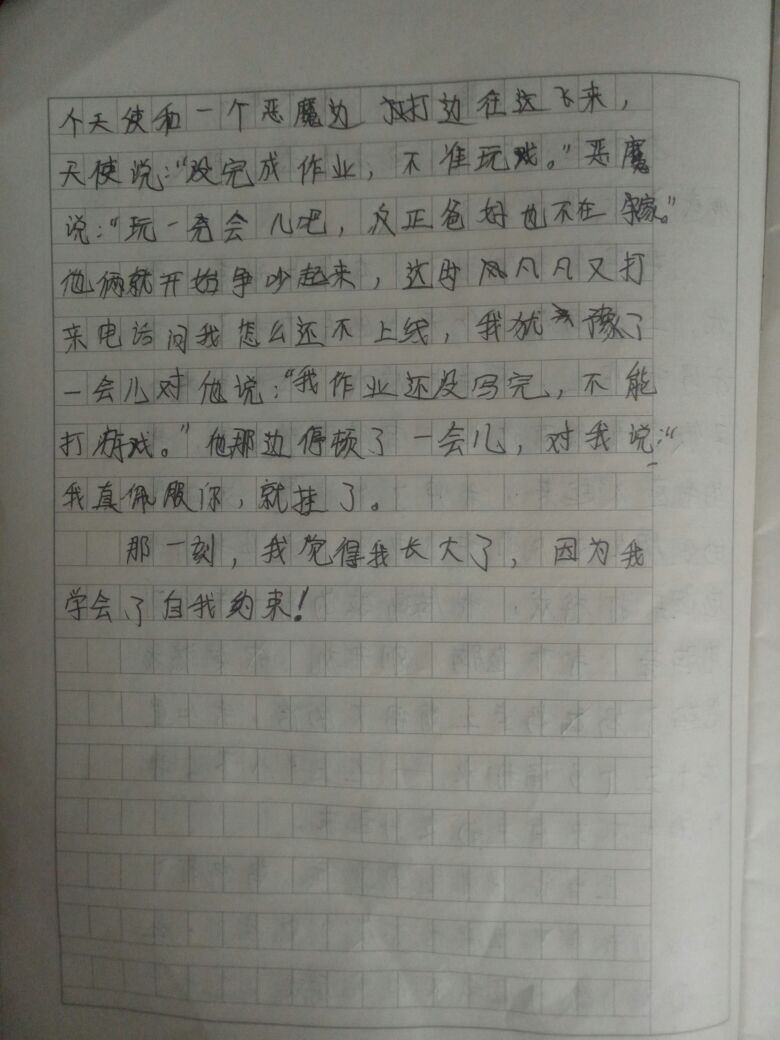 个天使和一个恶魔边打边往这飞来，
天使说：“没完成作业，不准玩戏。”恶魔
说：“玩一充会儿吧，反正爸妈也不在家。”
他俩就开始争吵起来，这时凡凡又打
来电话问我怎么还不上线，我犹豫了
一会儿对他说：“我作业还没写完，不能
打游戏。”他那边停顿了一会儿，对我说：“
我真佩服你，就挂了。
那一刻，我觉得我长大了，因为我
学会了自我约束！